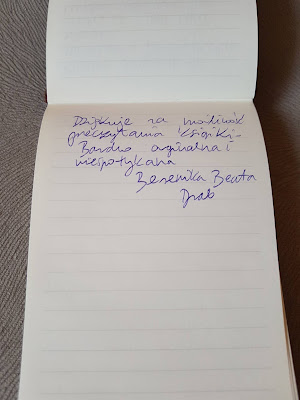 Dziękuję za możliwość
przeczytania książki-
Bardzo oryginalna i
niespotykana
Berenika Beata
Drab